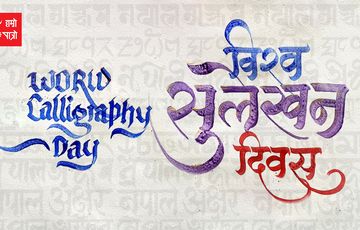 हाम्रो
पात्रो
WORLD
Calligraphy
DAY
विश्व
सुलेखन
दिवस